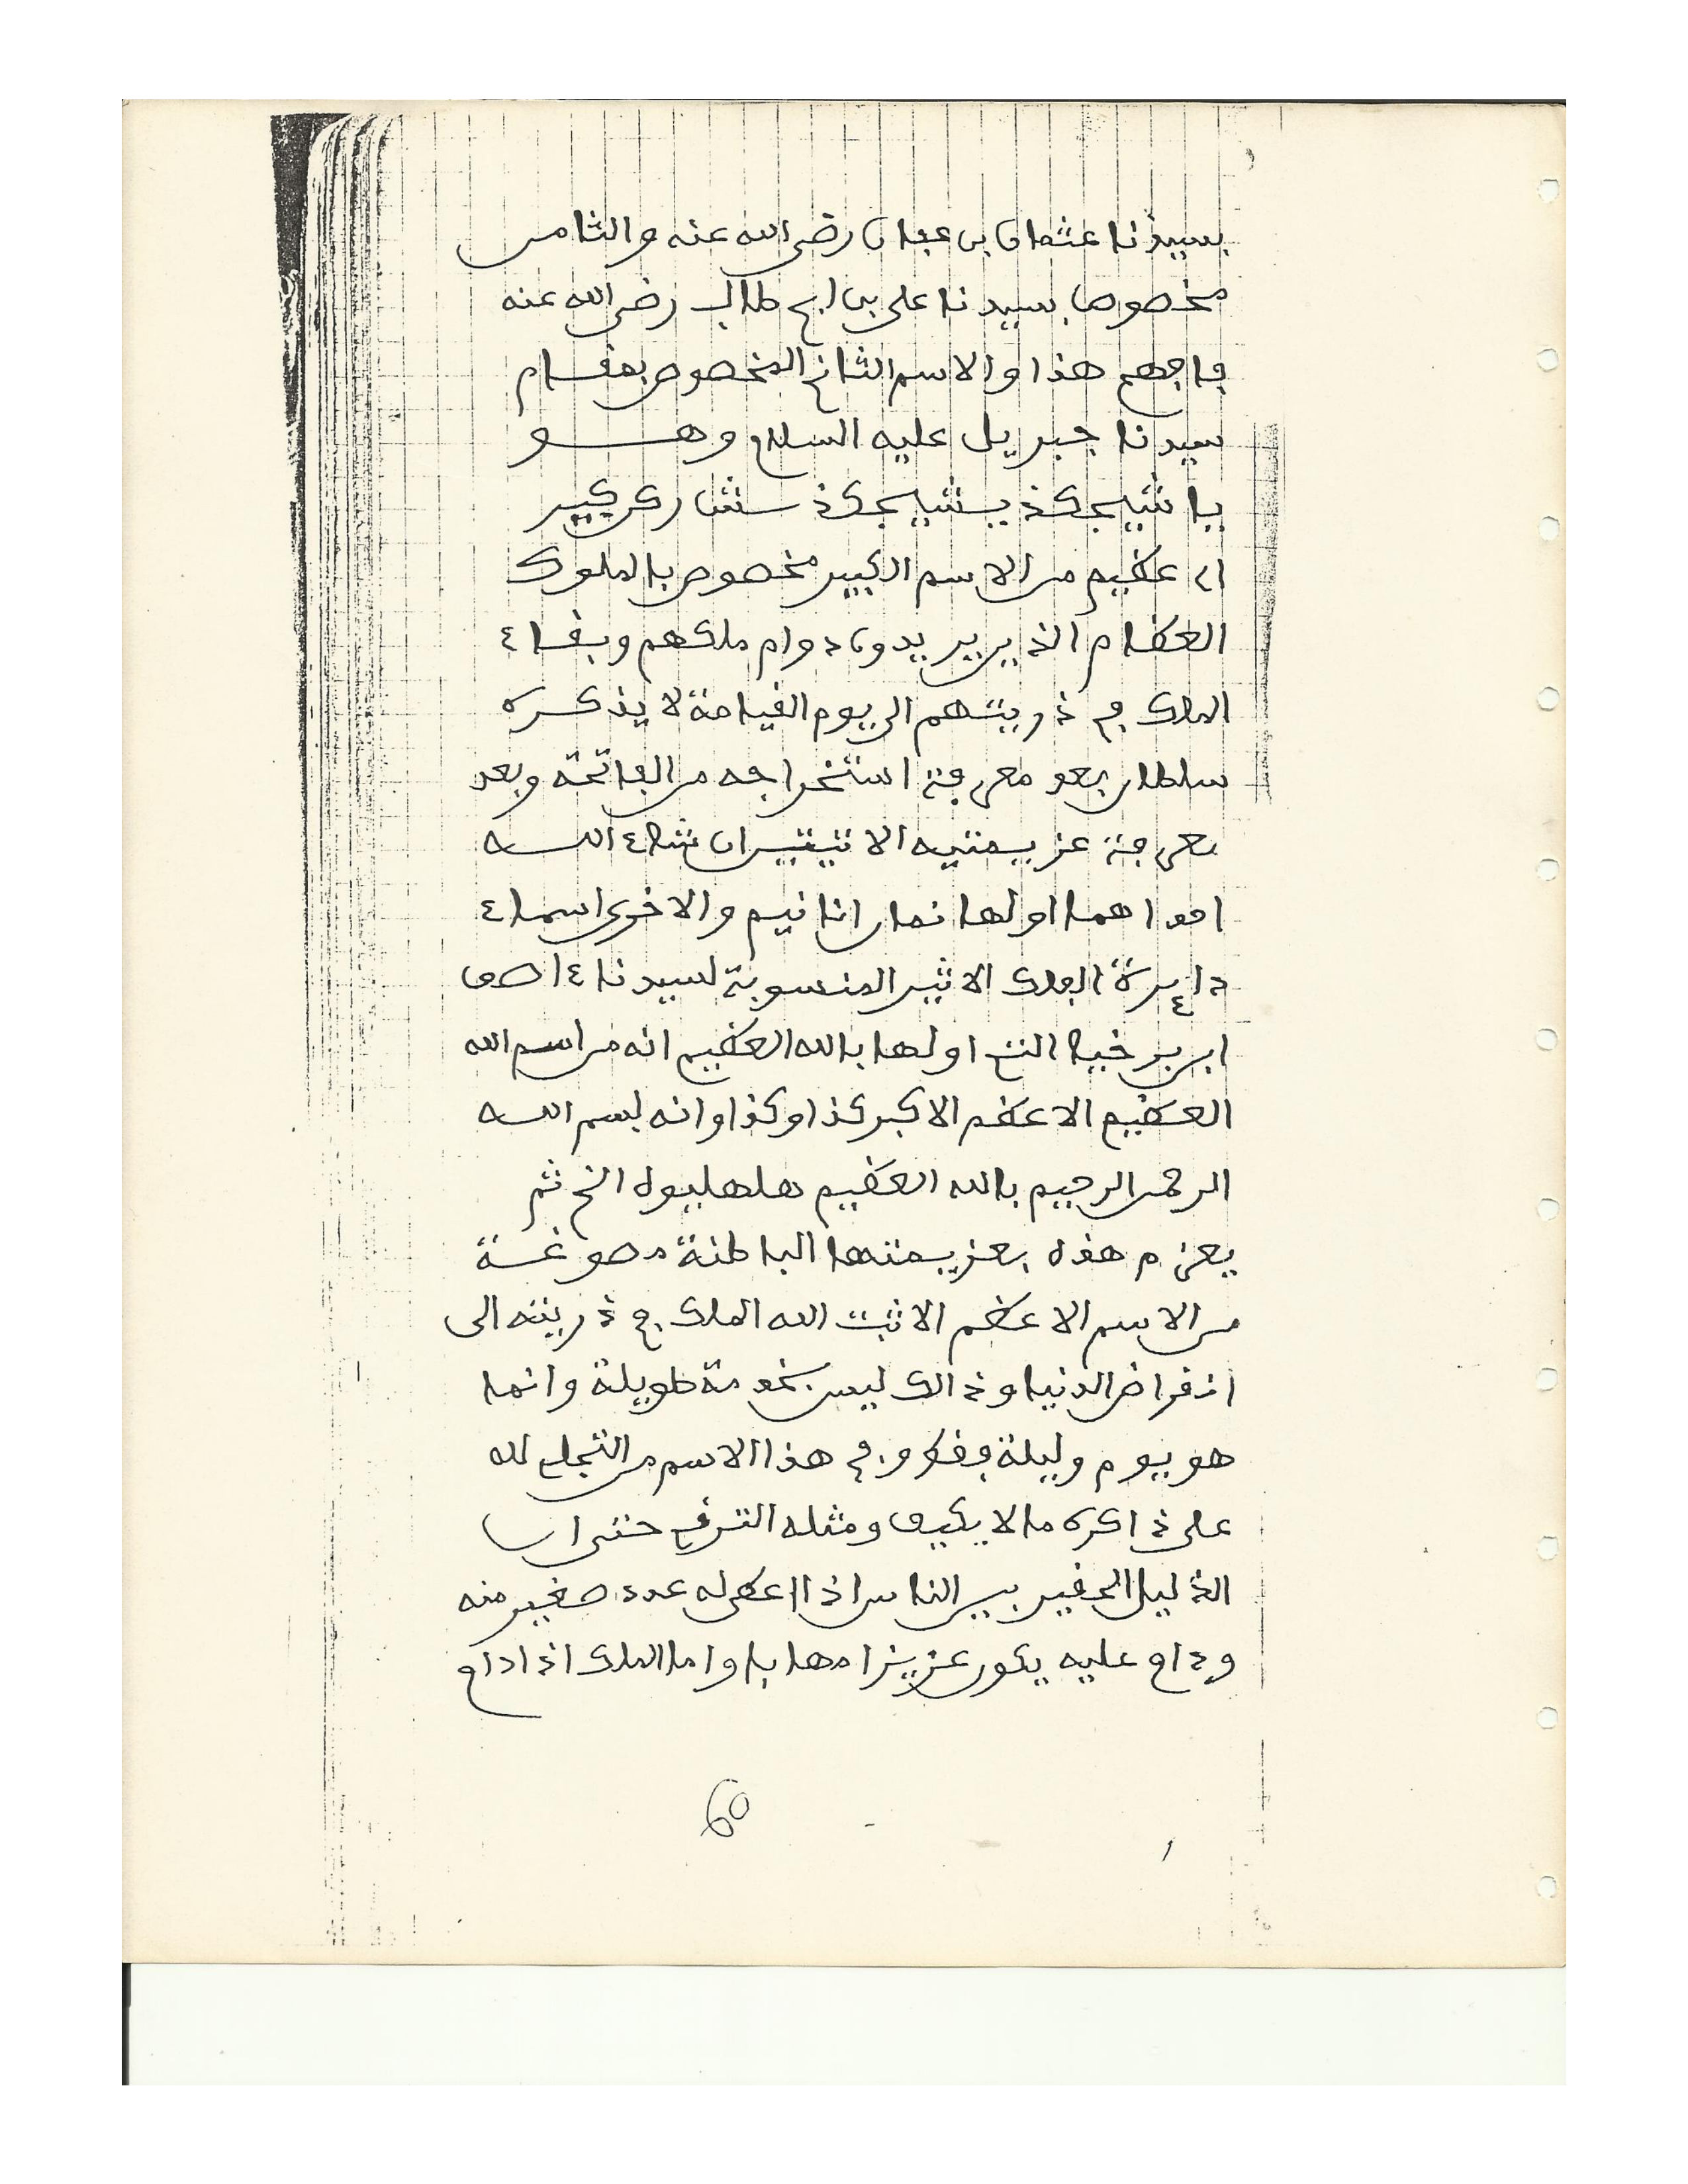 بسيدنا عثمان بن عفان رضي الله عنه والثامن
مخصوص بسيدنا علي بن ابي طالب رضي الله عنه
فافهم هذا والاسم الثاني المخصوص بمقام
سيدنا جبريل عليه السلام وهو
يا
عظيم من الاسم الكبير مخصوص بالملوك
العظام الذين يريدون دوام ملكهم وبقاء
الملك في ذريتهم الى يوم القيامة لا يذكره
سلطان بعد معرفة استخراجه من الفاتحة وبعد
معرفة عزيمتيه الاثنين ان شاء الله
احداهما اولها انانيم والاخرى اسماء
دائرة الفلك الاثير المنسوبة لسيدنا ءاصف
ابن برخيا التي اولها بالله العظيم انه من اسم الله
العظيم الاعظم الاكبر كذا وكذا وانه بسم الله
الرحمن الرحيم بالله العظيم هلهليوه الخ ثم
يعزم هذه بعزيمتها الباطنة مصوغة
من الاسم الاعظم الا ثبت الله الملك في ذريته الى
انقراض الدنيا وذالك ليس بخدمة طويلة وانما
هو يوم وليلة فقط وفي هذا الاسم من التجلي لله
على ذاكره ما لا يكيف ومثله الترقي حتى ان
الذليل الحقير بين الناس اذا اعطي له عدد صغير منه
وداوم عليه يكون عزيزا مهابا واما الملك اذا داوم
60